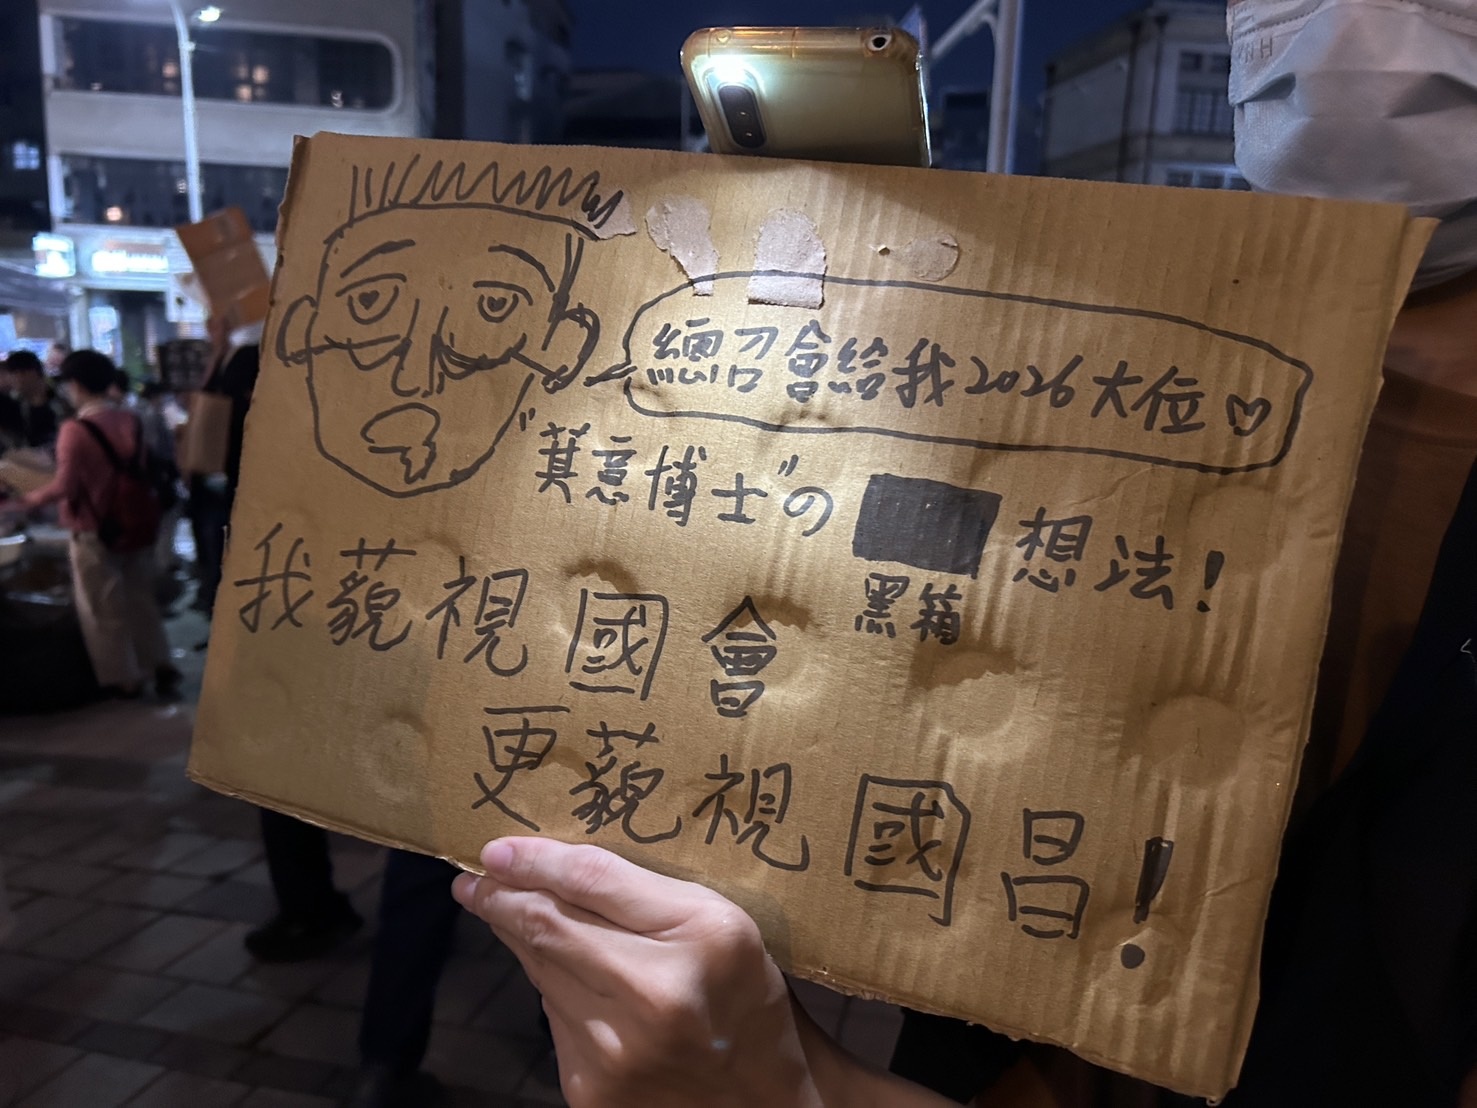 總召會給我2026大位♡
"萁意博士"の 想法!
黑箱
我藐視國會
更藐視國昌!